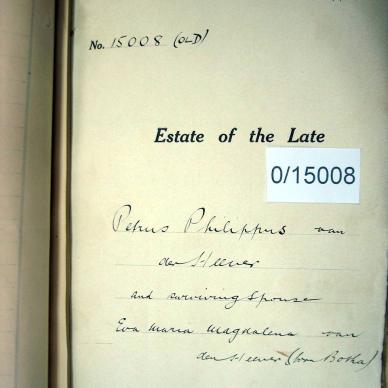 No. 15008 (OLD)
Estate of the Late
0/15008
Petrus Philippus van
der Heever
and surviving Spouse
Eva Maria Magdalena van
der Heever (born Botha)